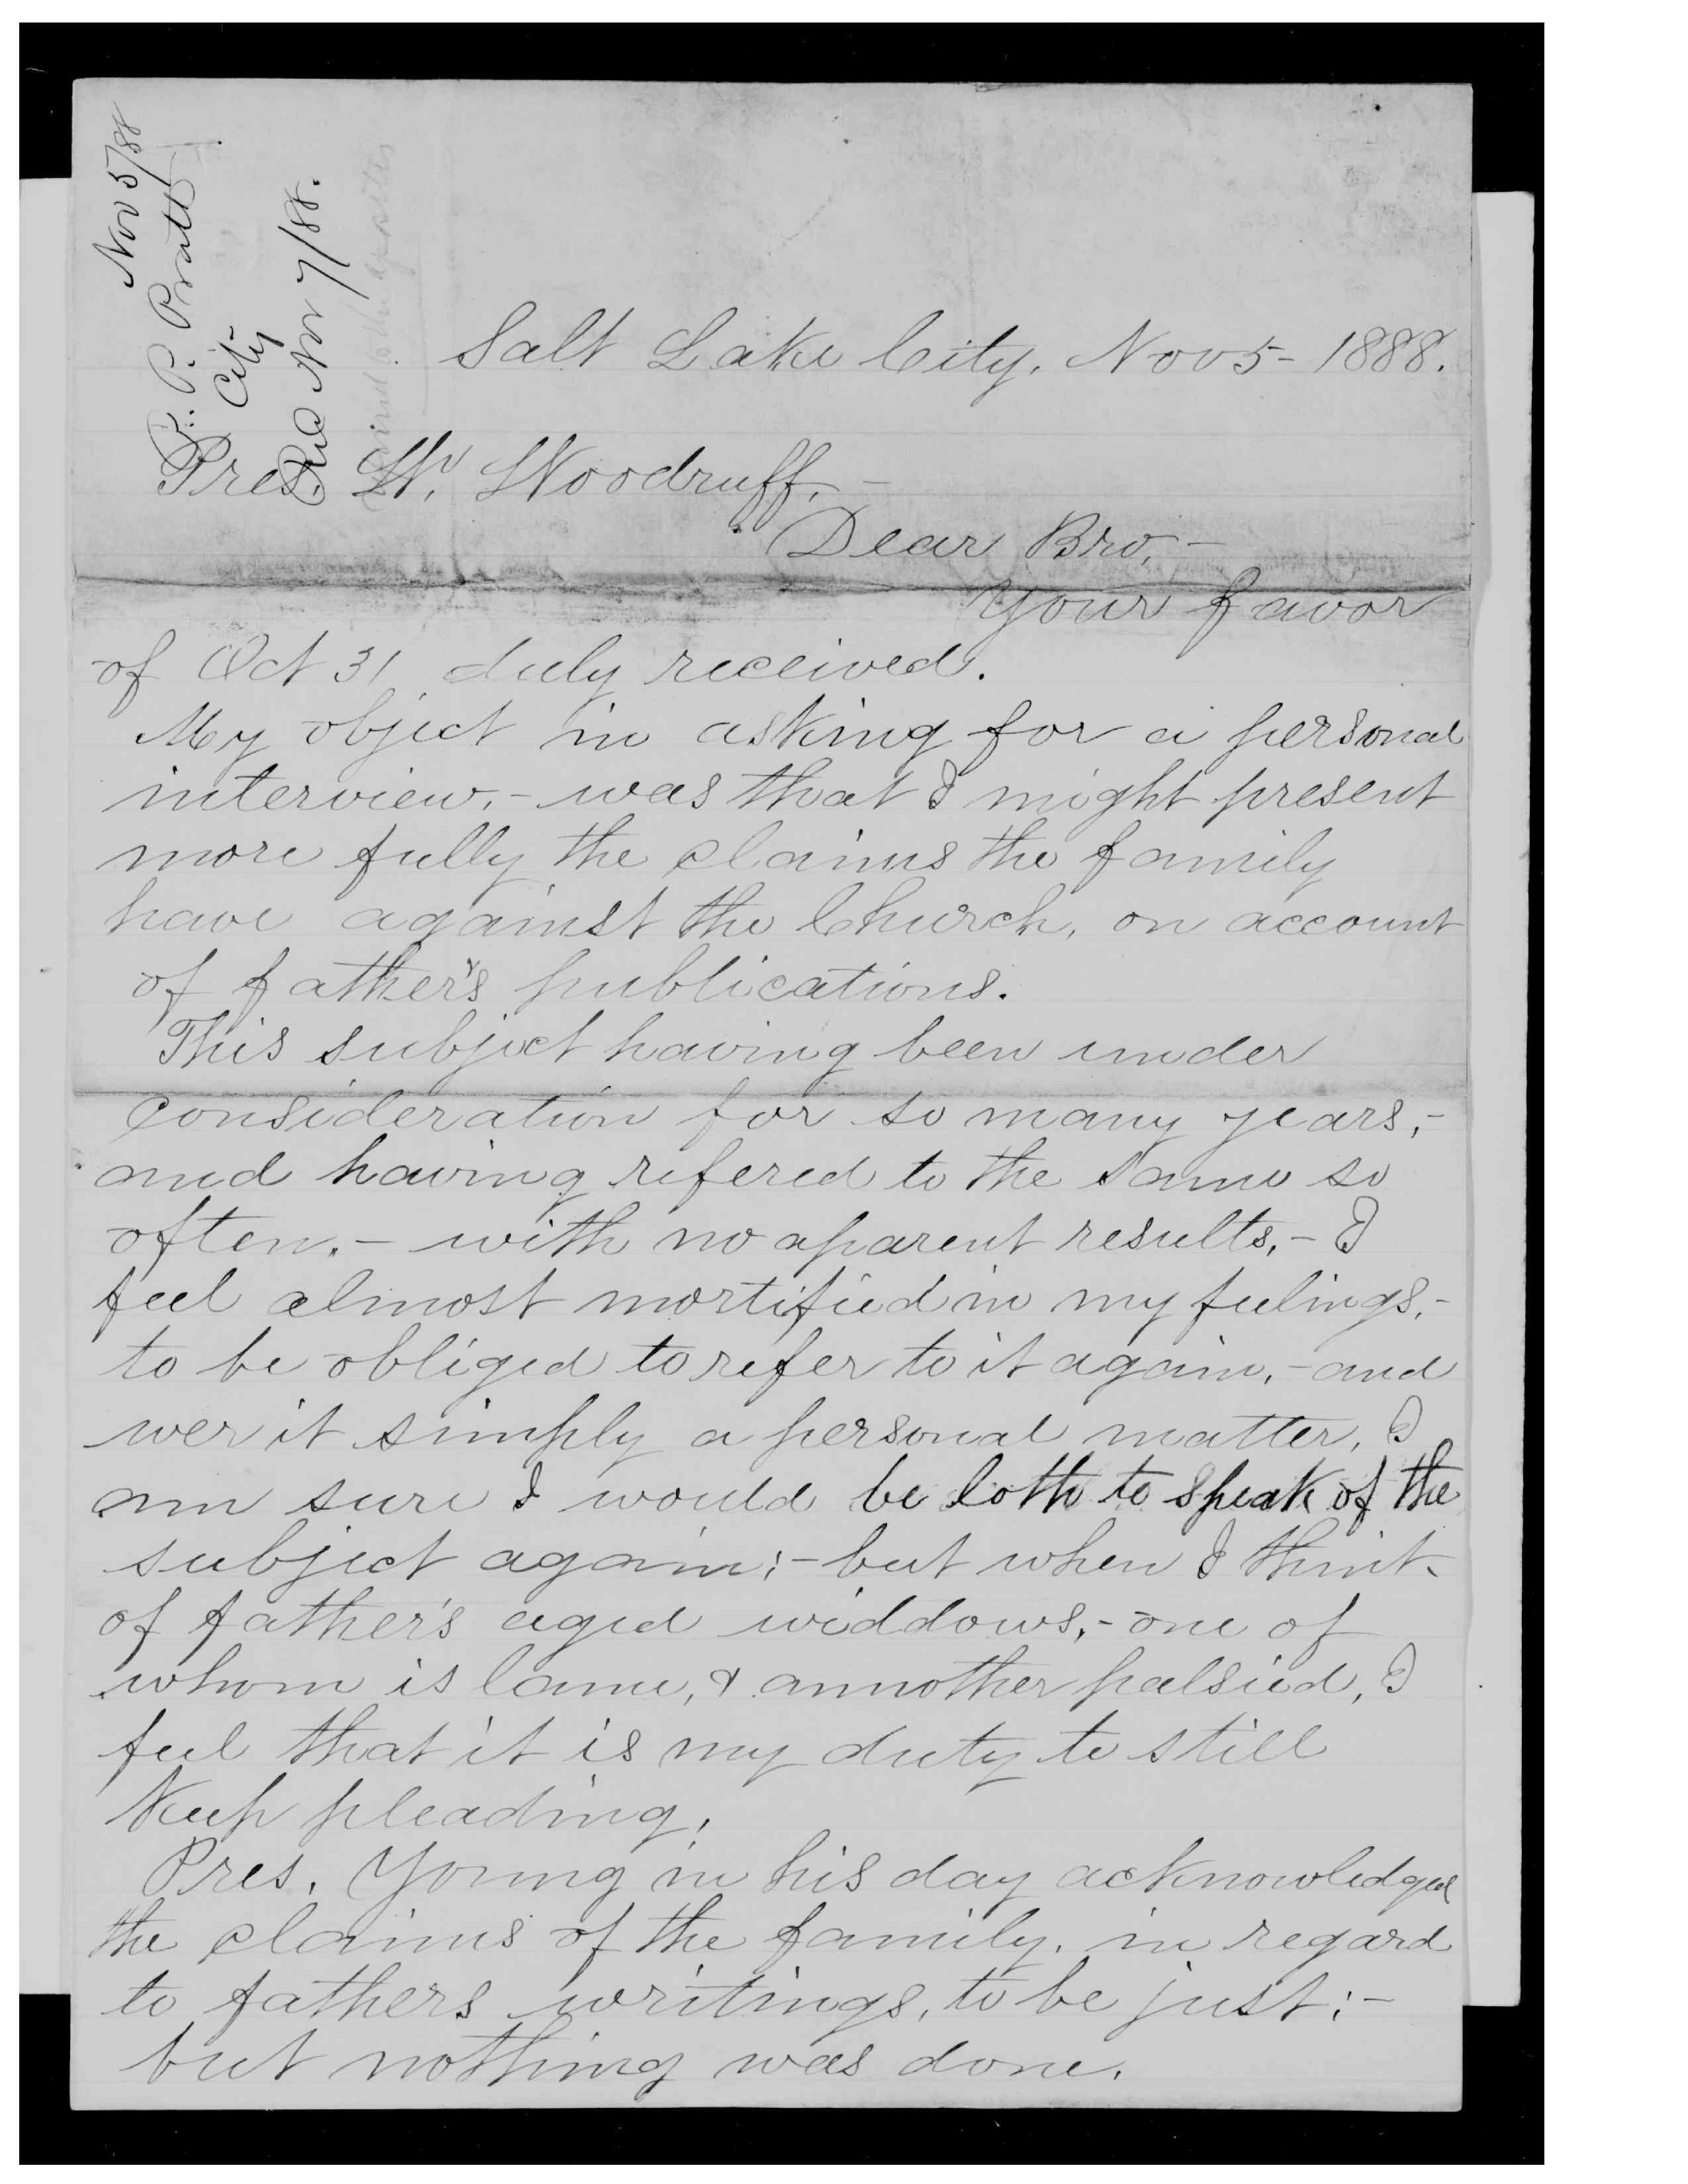 Nov 5/88
P. P. Pratt
City
Recd Nov 7/88.
Salt Lake City, Nov 5- 1888.
Pres. W. Woodruff,-
Dear Bro,-
Your favor
of Oct 31 duly received.
My object in asking for a personal
interview,- was that I might present
more fully the claims the family
have against the Church, on account
of father's publications.
This subject having been under
consideration for so many years,-
and having refered to the same so
often,- with no aparent results,- I
feel almost mortified in my feelings,-
to be obliged to refer to it again,- and
wer it simply a personal matter, I
am sure I would be loth to speak of the
subject again;- but when I think
of father's aged widdows,- one of
whom is lame, & annother palsied, I
feel that it is my duty to still
Keep pleading,
Pres. Young in his day acknowledged
the claims of the family, in regard
to fathers writings, to be just;-
but nothing was done.